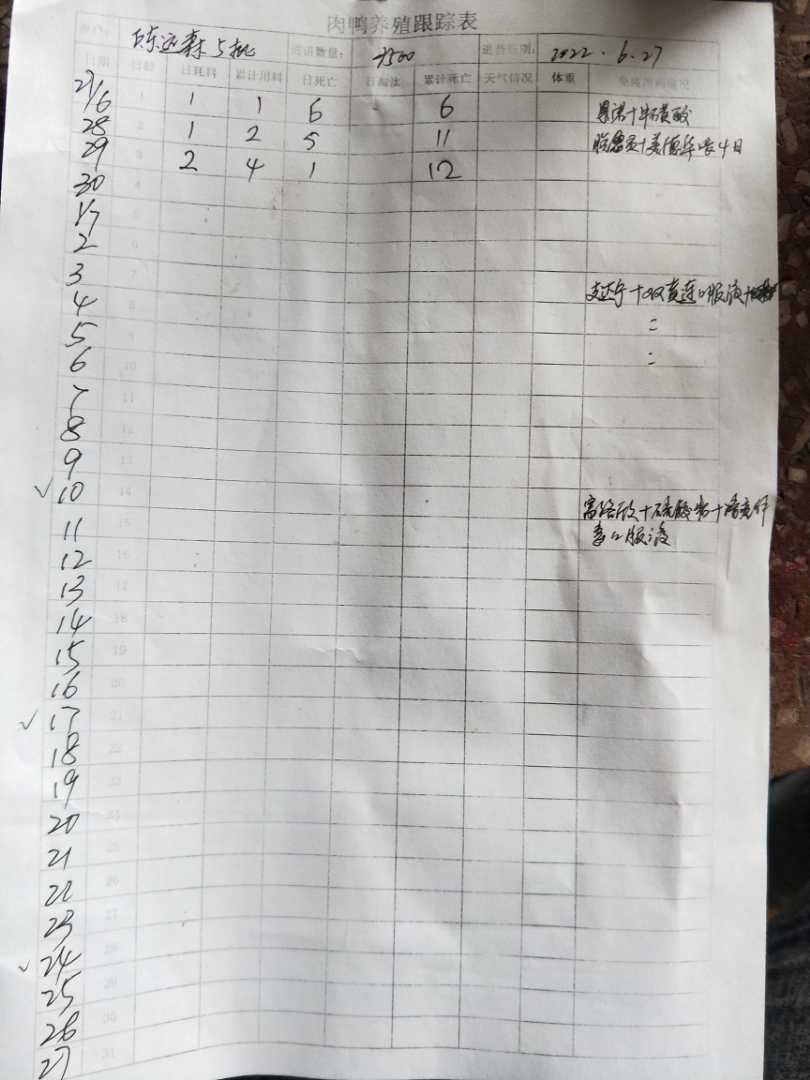 肉鸭养殖跟踪表
养户： 陈远森5批 进苗数量： 7500 进苗日期： 2022.6.27
日期 日龄 日耗料 累计用料 日死亡 日淘汰 累计死亡 天气情况 体重 免疫用药情况
27/6 1 1 1 6 6
28 2 1 2 5 11
29 3 2 4 1 12
30 4
1/7 5
2 6
3 7
4 8 =
5 9 =
6 10
7 11
8 12
9 13
✓ 10 14
11 15 口服液
12 16
13 17
14 18
15 19
16 20
✓ 17 21
18 22
19 23
20 24
21 25
22 26
23 27
✓ 24 28
25 29
26 30
27 31